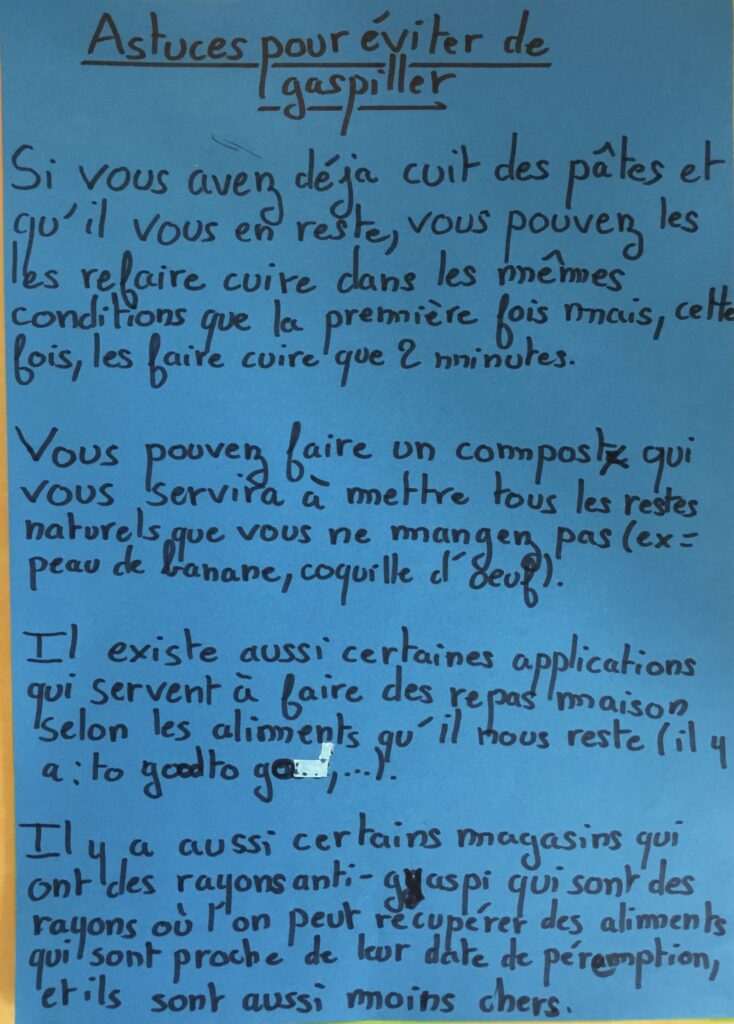 Astuces pour éviter de
gaspiller
Si vous avez déja cuit des pâtes et
qu'il vous en reste, vous pouvez les
les refaire cuire dans les mêmes
conditions que la première fois mais, cette
fois, les faire cuire que 2 minutes.
Vous pouvez faire un compost qui
vous servira à mettre tous les restes
naturels que vous ne mangez pas (ex=
peau de banane, coquille d'oeuf).
Il existe aussi certaines applications
qui servent à faire des repas maison
selon les aliments qu'il nous reste (il y
a : to good to go, ...).
Il y a aussi certains magasins qui
ont des rayons anti-gaspi qui sont des
rayons où l'on peut récupérer des aliments
qui sont proche de leur date de péremption,
et ils sont aussi moins chers.